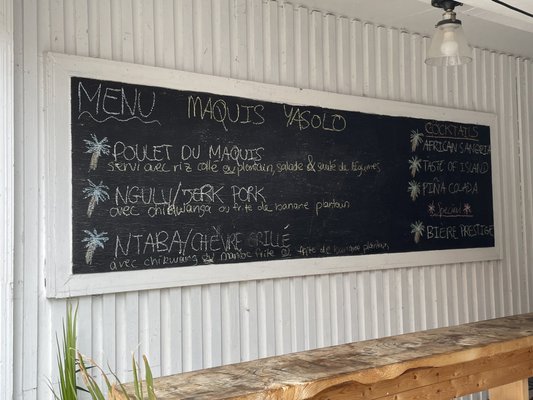 MENU
MAQUIS YASOLO
POULET DU MAQUIS
servi avec riz colle ou plantain, salade & sauté de légumes
NGULU/JERK PORK
avec chikwanga ou frite de banane plantain
NTABA/CHÈVRE GRILLÉ
avec chikwang ou manioc frite ou frite de banane plantain
COCKTAILS
AFRICAN SANGRIA
TASTE OF ISLAND
PIÑA COLADA
Special
BIERE PRESTIGE